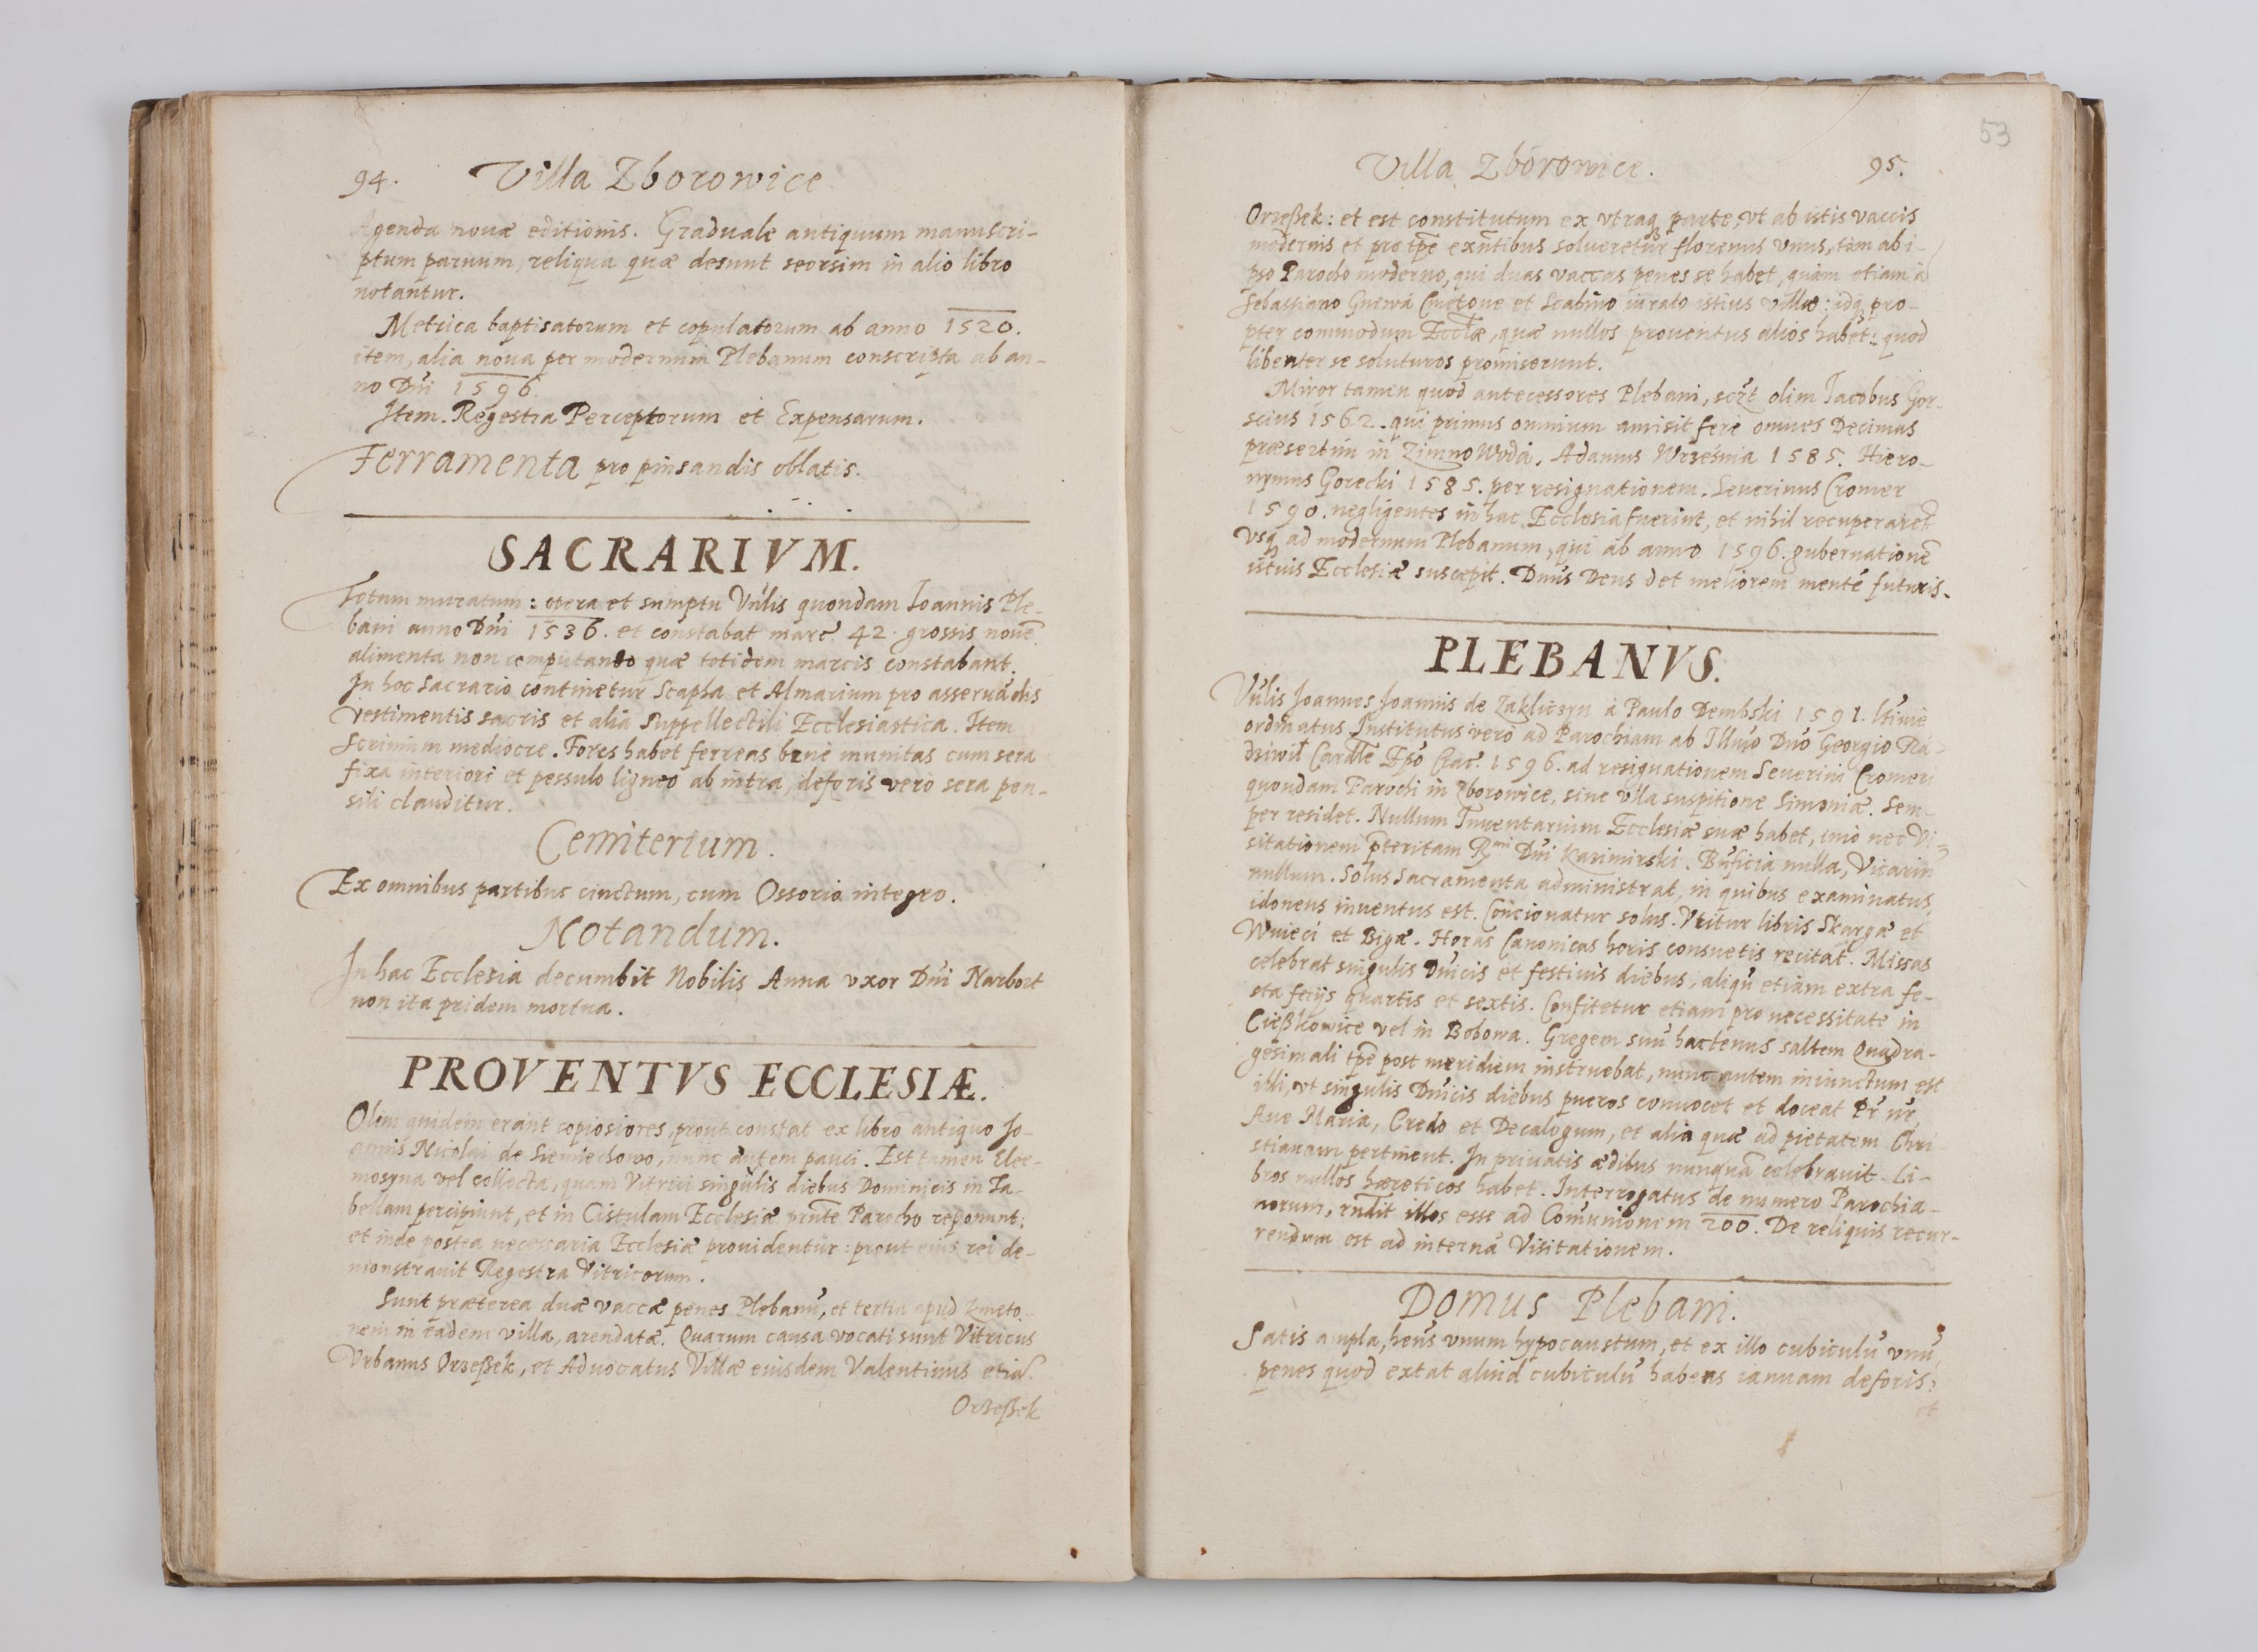 94. Villa Zborowice.
Agenda nouæ editionis. Graduale antiquum manuscri-
ptum paruum, reliqua quæ desunt seorsim in alio libro
notantur.
Metrica baptisatorum et copulatorum ab anno 1520.
item, alia noua per modernum Plebanum conscripta ab an-
no Dñi 1596.
Item. Regestra Perceptorum et Expensarum.
Ferramenta pro pinsandis oblatis.
SACRARIVM.
Totum muratum: opera et sumptu Vńlis quondam Ioannis Ple-
bani anno Dñi 1536. et constabat marc̃ 42. grossis nouẽ
alimenta non computando quæ totidem marcis constabant.
In hoc Sacrario continetur Scapha et Almarium pro asseruãdis
Vestimentis sacris et alia Suppellectili Ecclesiastica. Item
Scrinium mediocre. Fores habet ferreas benè munitas cum sera
fixa interiori et pessulo ligneo ab intra, deforis verò sera pen-
sili clauditur.
Cemiterium.
Ex omnibus partibus cinctum, cum Ossorio integro.
Notandum.
In hac Ecclesia decumbit Nobilis Anna vxor Dñi Narbort
non ita pridem mortua.
PROVENTVS ECCLESIÆ.
Olim quidem erant copiosiores, prout constat ex libro antiquo Jo-
annis Nicolai de Siemiechowo, nunc autem pauci. Est tamen Elee-
mosyna vel collecta, quam Vitrici singulis diebus Dominicis in Ta-
bellam percipiunt, et in Cistulam Ecclesiæ prñte Parocho reponunt;
et inde postea necessaria Ecclesiæ prouidentur: prout eius rei de-
monstrauit Regestra Vitricorum.
Sunt præterea duæ vaccæ penes Plebanũ, et tertia apud Kmeto-
nem in eadem villa, arendatæ. Quarum causa vocati sunt Vitricus
Vrbanus Orzeßek, et Aduocatus Villæ eiusdem Valentinus etiã
Orzeßek
53
Villa Zborowice. 95.
Orzeßek: et est constitutum ex vtraq parte, vt ab istis vaccis
modernis et pro tp̃e exñtibus solueretur florenus vnus, tàm ab i-
pso Parocho moderno, qui duas vaccas penes se habet, quàm etiam à
Sebastiano Gniewa Cmetone et Scabino iurato istius villæ: idq pro-
pter commodum Eccl̃æ, quæ nullos prouentus alios habet: quod
libenter se soluturos promiserunt.
Miror tamen quod antecessores Plebani, sczt olim Jacobus Gor-
scius 1562. qui primus omnium amisit ferè omnes Decimas
præsertim in Zimno Woda, Adamus Września 1585. Hiero-
nymus Gorecki 1585. per resignationem. Seuerinus Cromer
1590. negligentes in hac Ecclesia fuerint, et nihil recuperaret̃
Vsq ad modernum Plebanum, qui ab anno 1596. gubernationẽ
istius Ecclesiæ suscepit. Dñus Deus det meliorem mentẽ futuris.
PLEBANVS.
Vńlis Joannes Joannis de Zakliczyn à Paulo Dembski 1591. ltime
ordinatus, Institutus verò ad Parochiam ab Illmo Dño Georgio Ra-
dziwił Cardłe Epõ Crac̃. 1596. ad resignationem Seuerini Cromeri
quondam Parochi in Zborowice, sine vlla suspitione Simoniæ. Sem-
per residet. Nullum Inuentarium Ecclesiæ suæ habet, imò nec Vi-
sitationem p̃teritam R̃mi Dñi Kazimirski. Bñficia nulla, Vicariũ
nullum. Solus Sacramenta administrat, in quibus examinatus,
idoneus inuentus est. Concionatur solus. Vtitur libris Skargæ et
Wuieci et Bigæ. Horas Canonicas horis consuetis recitat. Missas
celebrat singulis Dñicis et festiuis diebus, aliqũ etiam extra fe-
sta ferijs quartis et sextis. Confitetur etiam pro necessitate in
Cießkowice vel in Bobowa. Gregem suũ hactenus saltem Quadra-
gesimali tp̃e post meridiem instruebat, nunc autem iniunctum est
illi, vt singulis Dñicis diebus pueros conuocet et doceat Pr̃ nr̃,
Aue Maria, Credo et Decalogum, et alia quæ ad pietatem Chri-
stianam pertinent. In priuatis ædibus nunquã celebrauit. Li-
bros nullos hæreticos habet. Interrogatus de numero Parochia-
norum, rñdit illos esse ad Comunionem 200. De reliquis recur-
rendum est ad internã Visitationem.
Domus Plebani.
Satis ampla, hẽns vnum hypocaustum, et ex illo cubiculũ vnũ,
penes quod extat aliud cubiculũ habens ianuam deforis:
et